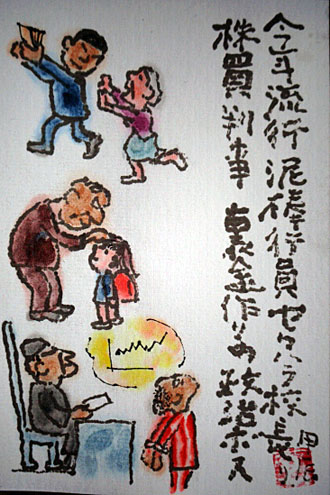 今年流行 泥棒行員 セクハラ校長
株買判事 裏金作りの政